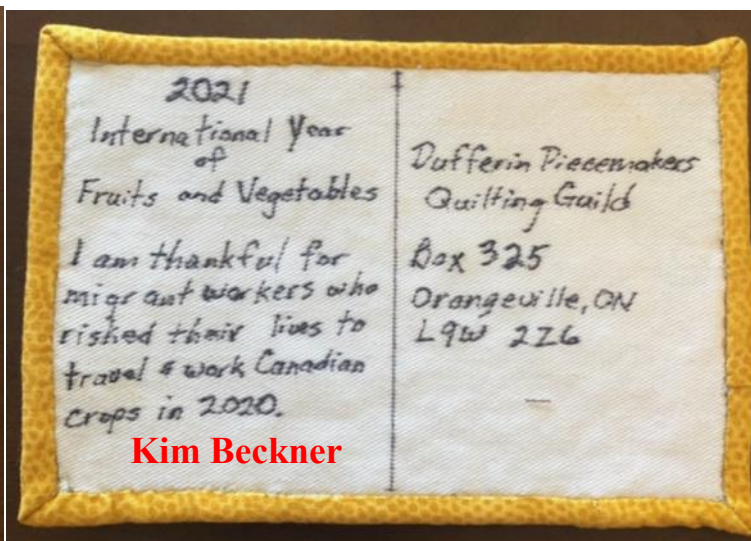 2021
International Year
of
Fruits and Vegetables
I am thankful for
migrant workers who
risked their lives to
travel & work Canadian
crops in 2020.
Kim Beckner
Dufferin Piecemakers
Quilting Guild
Box 325
Orangeville, ON
L9W 2Z6